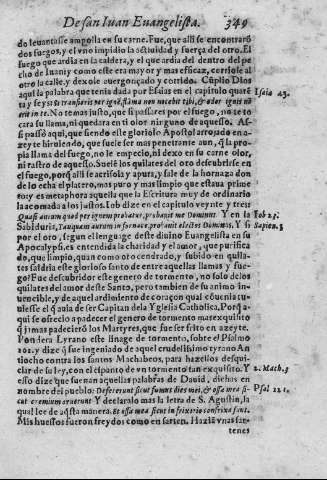 De san Iuan Euangelista. 349
do leuantasse ampolla en su carne. Fue, que alli se encontrarõ
dos fuegos, y el vno impidio la actiuidad y fuerça del otro. El
fuego que ardia en la caldera, y el que ardia del dentro del pe
cho de Iuan: y como este era mayor y mas eficaz, corriose al
otro la calle, y dexole auergonçado y corrido. Cuplio Dios
aqui la palabra que tenia dada por Esaias en el capitulo quarẽ
ta y sey si transieris per ignẽ, flãma non nocebit tibi, & odor ignis nõ
erit in te. No temas justo, que si passares por el fuego, no te to
cara su llama, ni quedara en ti olor ninguno de aquesso. As-
si passò aqui, que siendo este glorioso Apostol arrojado en a-
zeyte hiruiendo, que suele ser mas penetrante aun, q̃ la pro-
pia llama del fuego, no le empecio, ni dexo en su carne olor,
ni rastro de aquesto. Suele los quilates del oro descubrirse en
el fuego, porq̃ alli se acrisola y apura, y sale de la hornaza don
de lo echa el platero, mas puro y mas limpio que estaua prime
ro, y es metaphora aquella que la Escritura muy de ordinario
la acomoda a los justos. Iob dize en el capitulo veynte y tres:
Quasi aurum quod per ignem probatur, probauit me Dominus. Y en la
Sabiduria, Tanquam aurum in fornace probauit electos Dominus. Y si
por el oro, segun el lenguage deste diuino Euangelista en su
Apocalyps. es entendida la charidad y el amor, que purifica
do, que limpio, quan como oro cendrado, y subido en quila-
tes saldria este glorioso santo de entre aquellas llamas y fue-
go? Fue descubridor este genero de tormento, no solo de los
quilates del amor deste Santo, pero tambien de su animo in-
uencible, y de aquel ardimiento de coraçon qual cõuenia tu-
uiesse el q̃ auia de ser Capitan de la Yglesia Catholica, Porq̃ a-
qui se ofrecio a padecer el genero de tormento mas exquisito
q̃ jamas padecierõ los Martyres, que fue ser frito en azeyte.
Pondera Lyrano este linage de tormento, sobre el Psalmo
101. y dize q̃ fue ingeniado de aquel crudelissimo tyrano An
tiocho contra los santos Machabeos, para hazelos desqui-
ciar de su ley, con el espanto de vn tormento tan exquisito. Y
esso dize que suenan aquellas palabras de Dauid, dichas en
nombre del pueblo: Defecerunt sicut fumus dies mei, & ossa mea si-
cut cremium aruerunt Y declaralo mas la letra de S. Agustin, la
qual lee de aq̃sta manera. Et ossa mea sicut in frixorio confrixa sunt.
Mis huessos fueron freydos como en sarten. Hazia vnas sar-
tenes
Isaie 43.
Iob 23.
Sapien. 3
2. Mach. 5